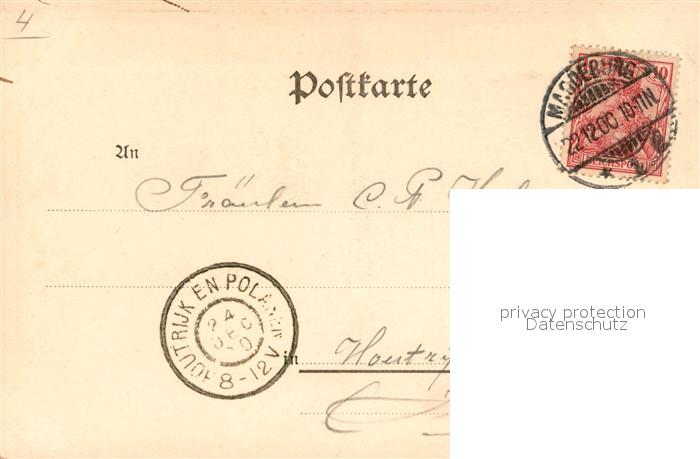 4
Postkarte
MAGDEBURG
22.12.00.10-11N.
REICHSPOST
10
An
Fräulein C. A.
HOUTRIJK EN POLANEN
24 DEC
00
8-12V
in
privacy protection
Datenschutz